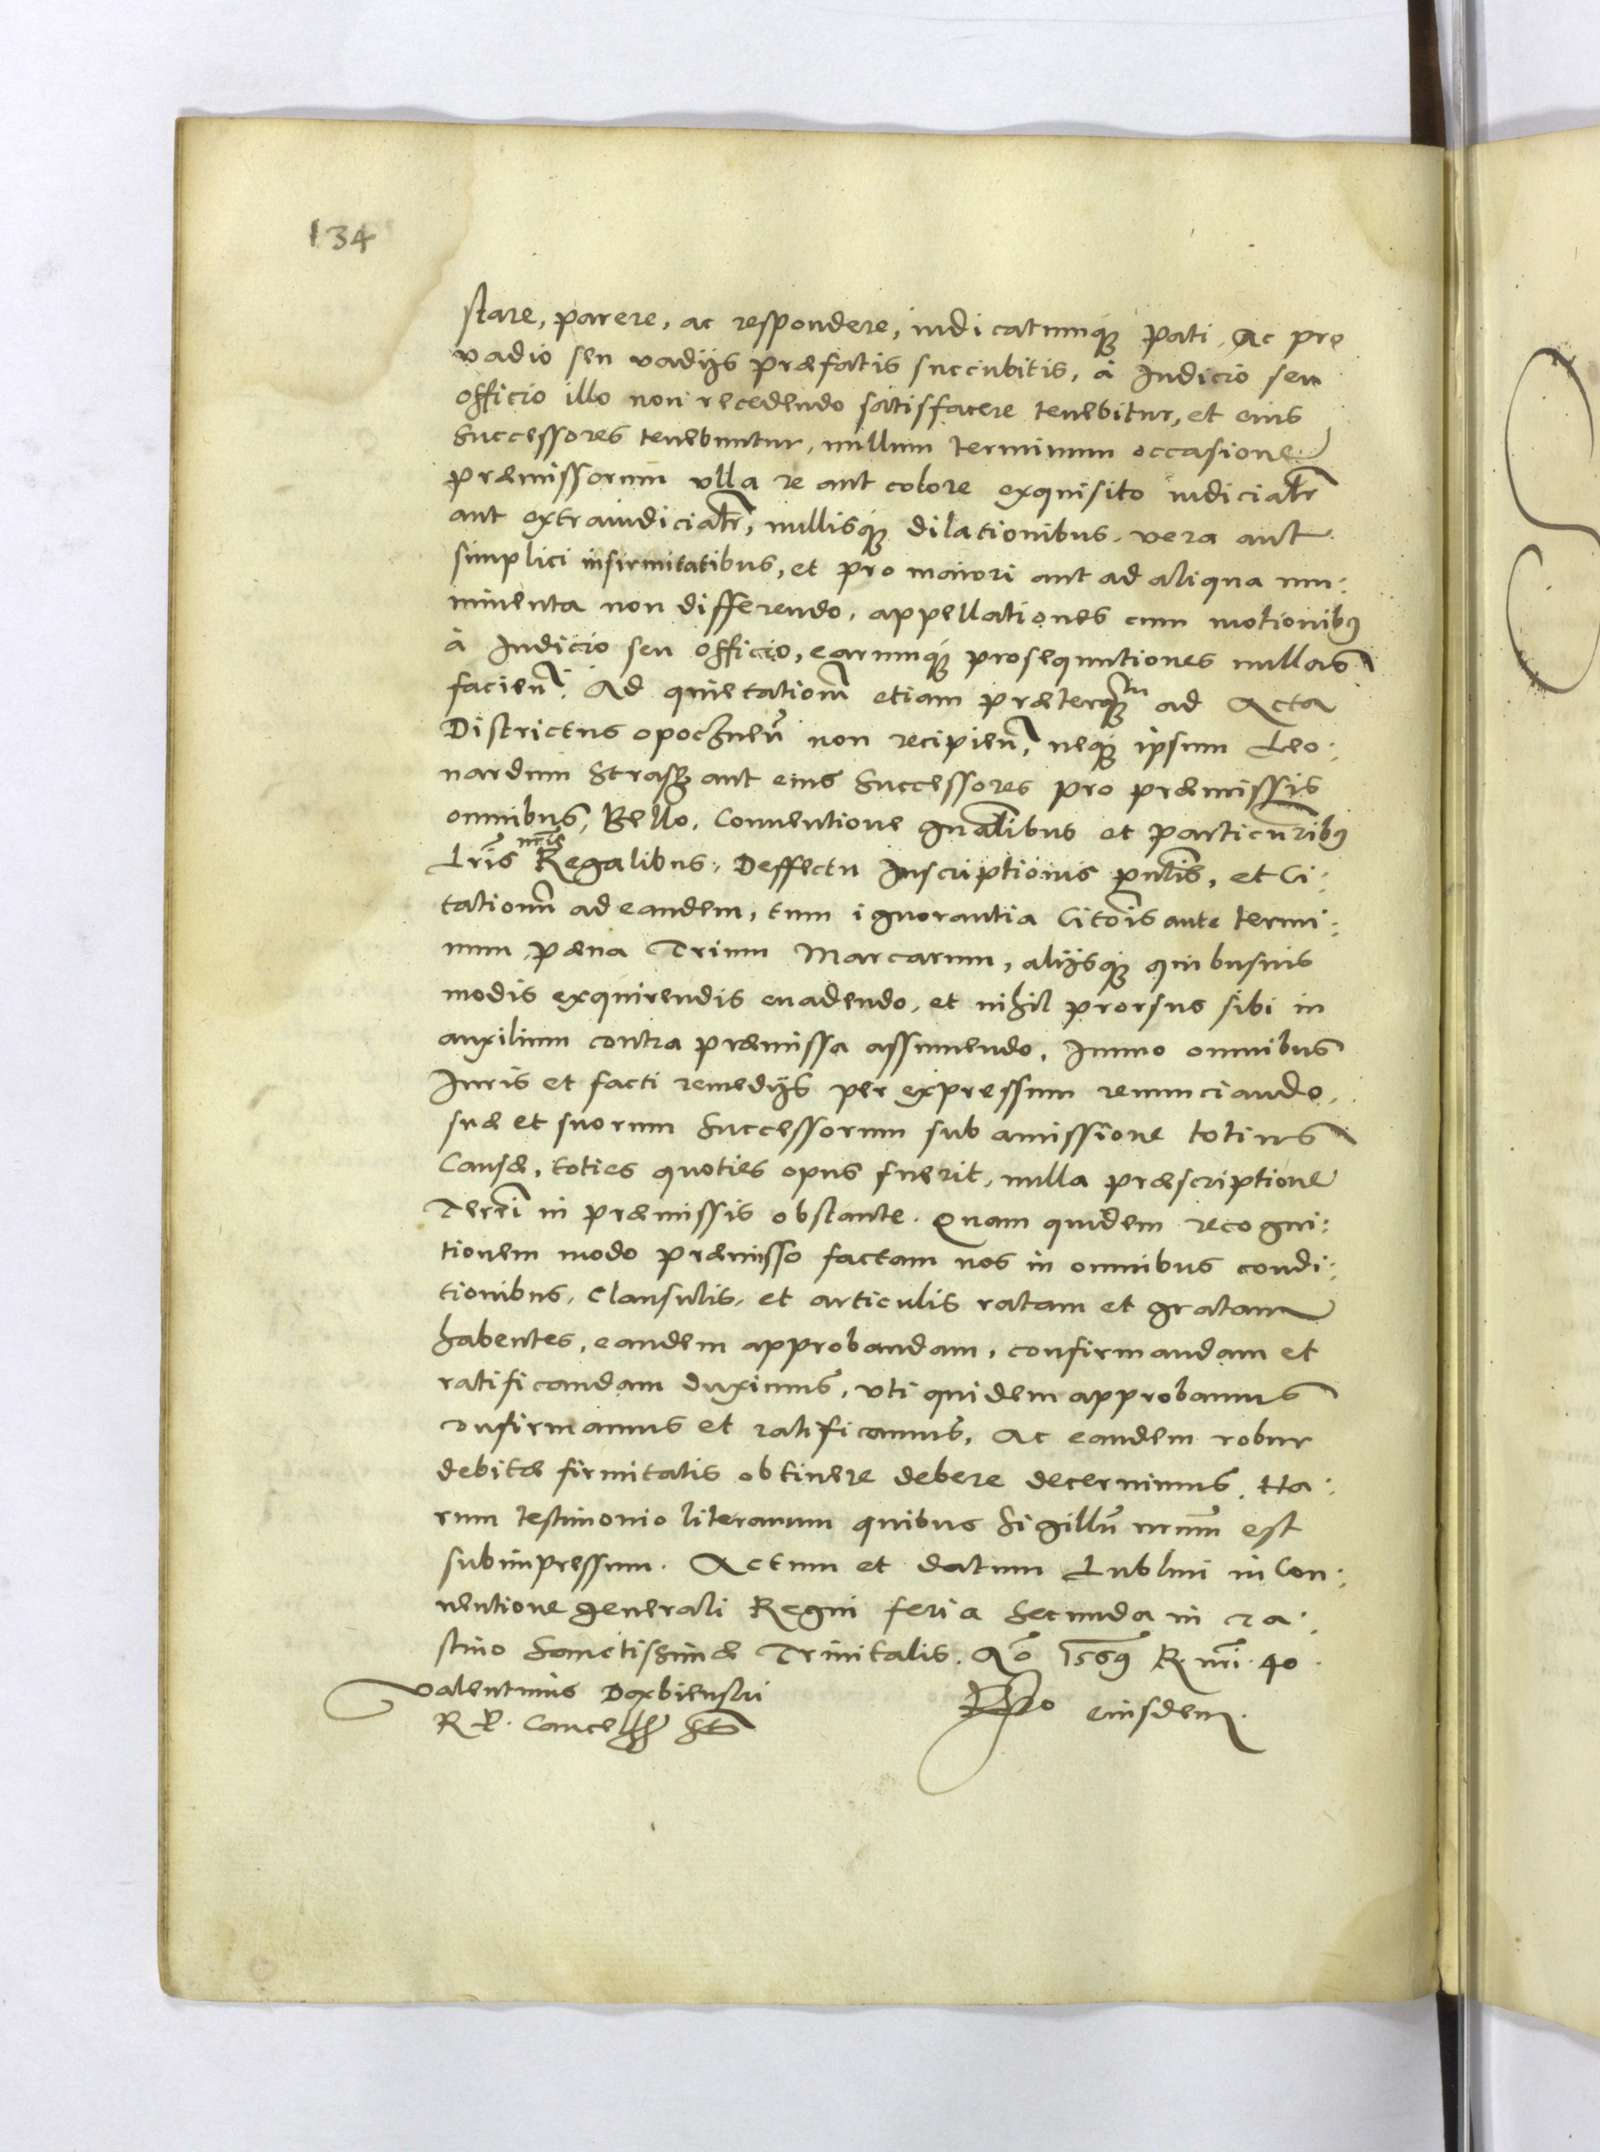 134
stare, parere, ac respondere, iudicatumque pati. Ac pro
vadio seu vadijs præfatis succubitis, à Iudicio seu
officio illo non recedendo satisfacere tenebitur, et eius
Successores tenebuntur, nullum terminum occasione
præmissorum vlla re aut colore exquisito iudicialr
aut extraiudicialr, nullisque dilationibus, vera aut
simplici infirmitatibus, et pro maiori aut ad aliqua mu:
nimenta non differendo, appellationes cum motionibus
à Iudicio seu officio, earumque prosequutiones nullas
facien. Ad quietationem etiam præterquam ad Acta
Districtus opocznen non recipien, neque ipsum Leo:
nardum Strasz aut eius Successores pro præmissis
omnibus, Bello, Conventione gnalibus et particularibus
Lris nris Regalibus, Deffectu Inscriptionis pntis, et Ci:
tationum ad eandem, tum ignorantia Citois ante termi:
num, pæna Trium Marcarum, alijsque quibusuis
modis exquirendis euadendo, et nihil prorsus sibi in
auxilium contra præmissa assumendo, Immo omnibus
Iuris et facti remedijs per expressum renunciando,
suæ et suorum Successorum sub amissione totius
Causæ, toties quoties opus fuerit, nulla præscriptione
Terrei in præmissis obstante. Quam quidem recogni:
tionem modo præmisso factam nos in omnibus condi:
tionibus, Clausulis, et articulis ratam et gratam
habentes, eandem approbandam, confirmandam et
ratificandam duximus, vti quidem approbamus
confirmamus et ratificamus, Ac eandem robur
debitæ firmitatis obtinere debere decernimus. Ha:
rum testimonio literarum quibus Sigillum nrum est
subimpressum. Actum et datum Lublini in Con:
uentione generali Regni feria Secunda in cra:
stino Sanctissimæ Trinitatis. Ao 1569 R. nri. 40.
Valentinus Dembienski
R. P. Cancell
eiusdem.